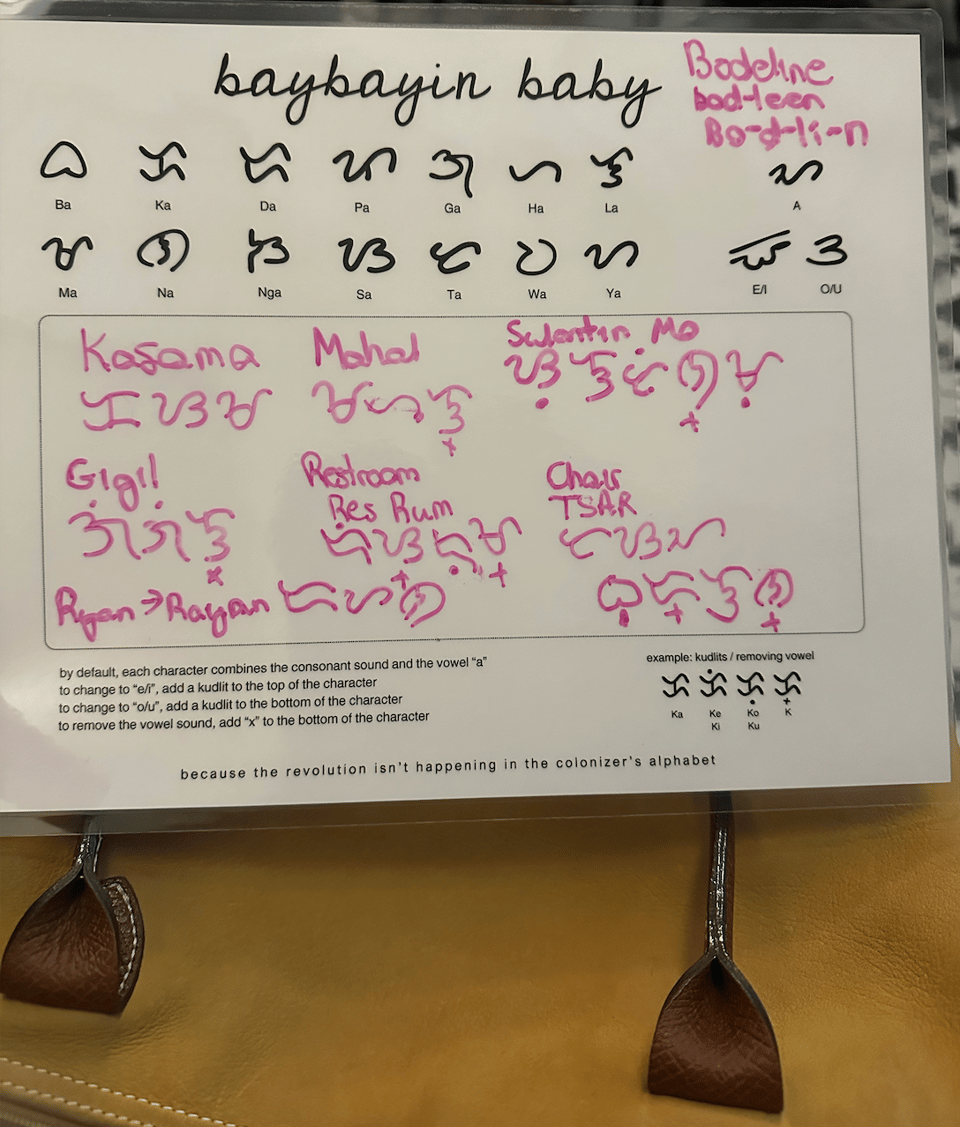 baybayin baby
Bodeline
bod-leen
Bo-d-li-n
ᜊ ᜃ ᜇ ᜉ ᜄ ᜑ ᜎ ᜀ
Ba Ka Da Pa Ga Ha La A
ᜋ ᜈ ᜅ ᜐ ᜆ ᜏ ᜌ ᜁ ᜂ
Ma Na Nga Sa Ta Wa Ya E/I O/U
Kasama Mahal Sulantin Mo
ᜃᜐᜋ ᜋᜑᜎ᜔ ᜐᜓᜎᜆᜒᜈ᜔ᜋᜓ
Gigil Restroom Chair
Res Rum TSAR
ᜄᜒᜄᜒᜎ᜔ ᜇᜒᜐ᜔ᜇᜓᜋ᜔ ᜆᜐᜀ
Ryan → Rayan ᜇᜌᜈ ᜊᜓᜇ᜔ᜎᜈ᜔
by default, each character combines the consonant sound and the vowel “a”
to change to “e/i”, add a kudlit to the top of the character
to change to “o/u”, add a kudlit to the bottom of the character
to remove the vowel sound, add “x” to the bottom of the character
example: kudlits / removing vowel
ᜃ ᜃᜒ ᜃᜓ ᜃ᜔
Ka Ke Ko K
Ki Ku
because the revolution isn't happening in the colonizer's alphabet